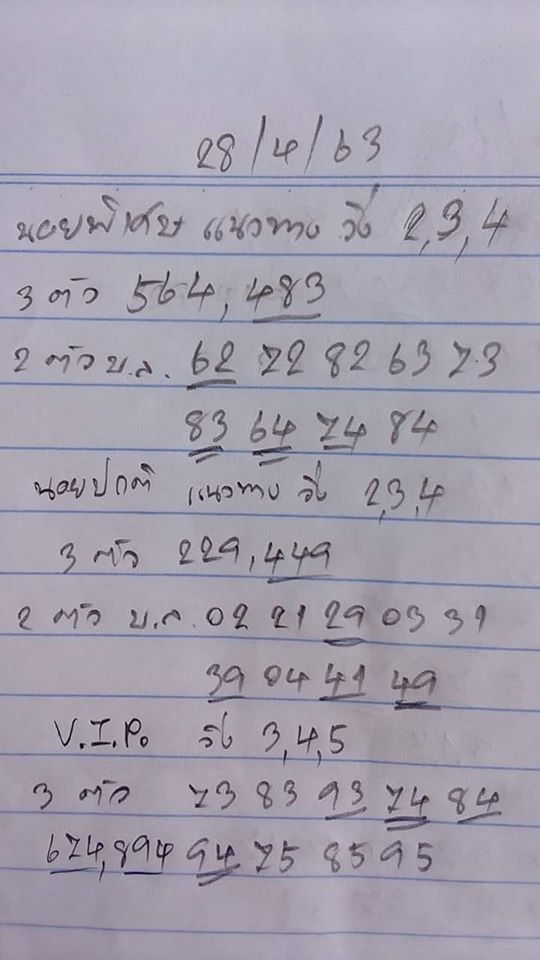 28/4/63
นอยพิเศษ แนวทาง วิ่ง 2,3,4
3 ตัว 564,483
2 ตัว บ.ล. 62 72 82 63 73
83 64 74 84
นอยปกติ แนวทาง วิ่ง 2,3,4
3 ตัว 229,449
2 ตัว บ.ล. 02 21 29 03 31
39 04 41 49
V.I.P. วิ่ง 3,4,5
3 ตัว 73 83 93 74 84
674,894 94 75 85 95